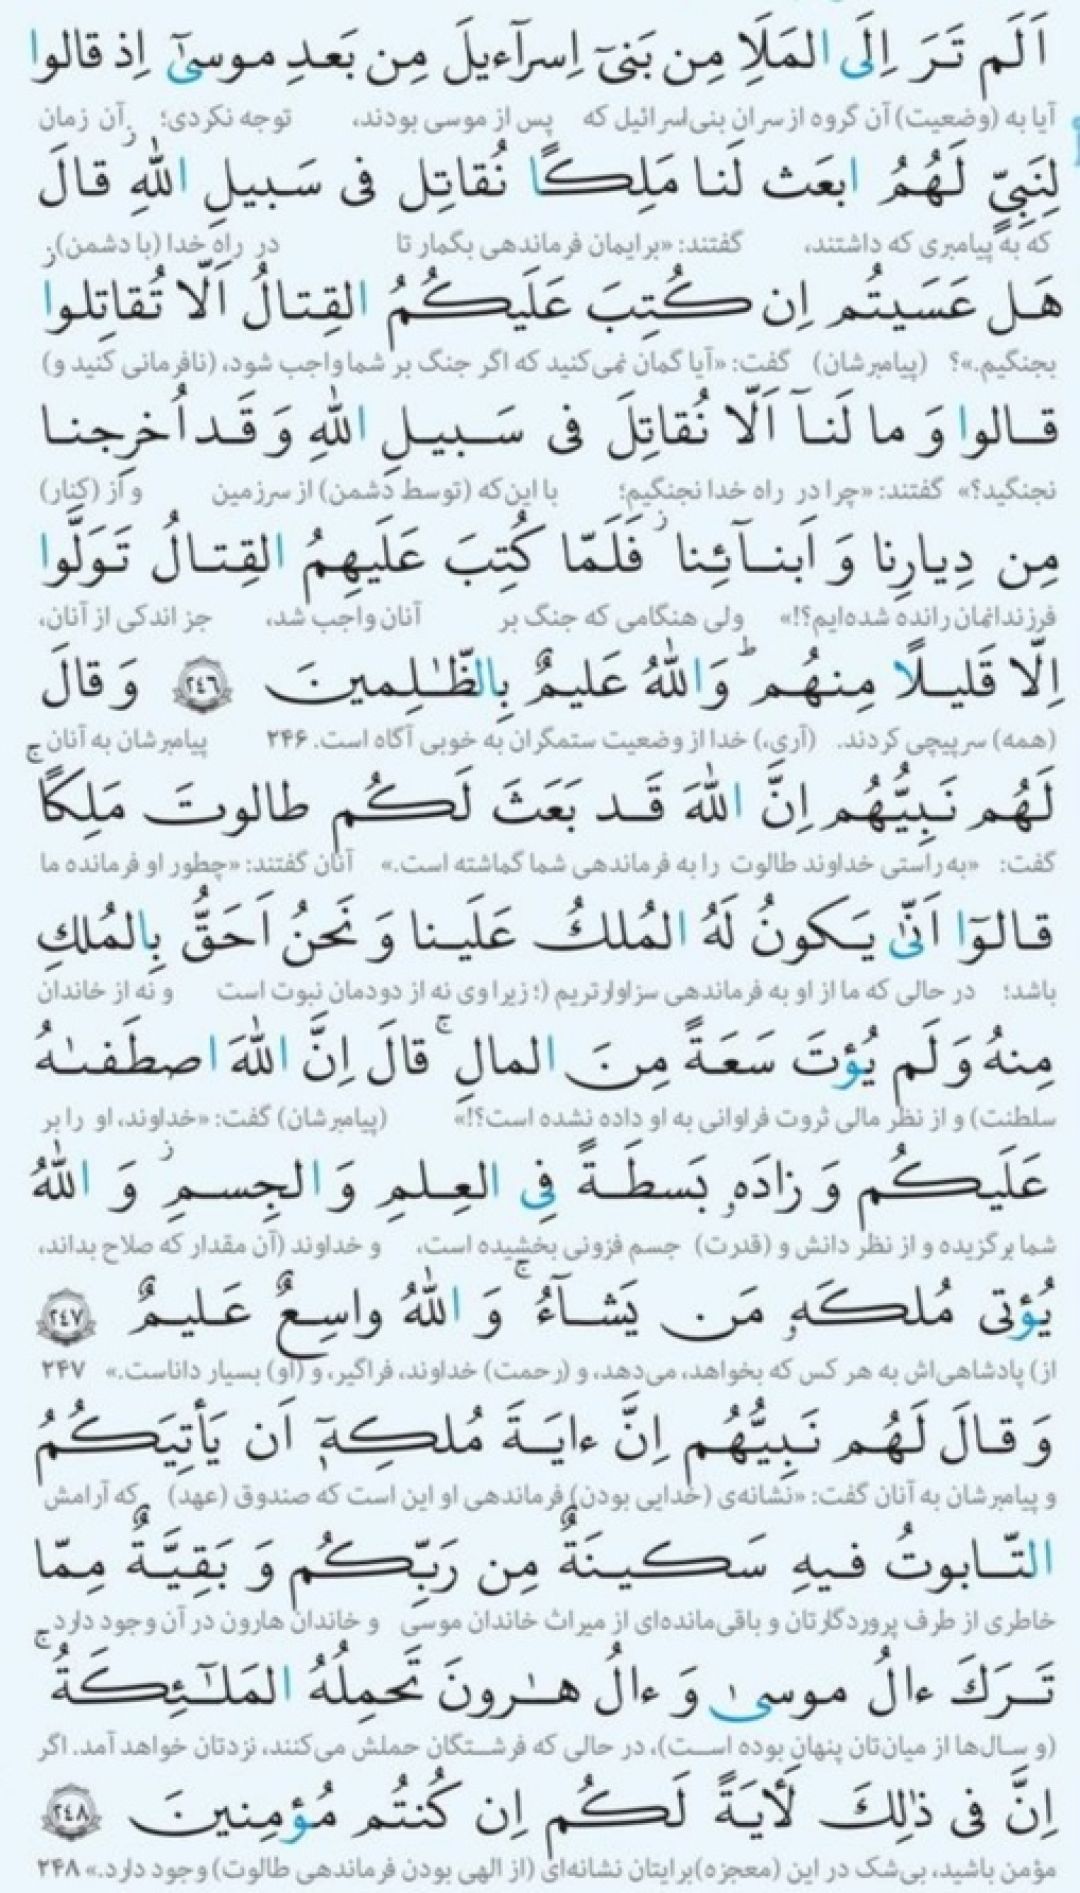 اَلَم تَرَ اِلَى المَلَاِ مِن بَنیٓ اِسرآءیلَ مِن بَعدِ موسیٰٓ اِذ قالوا
آیا به (وضعیت) آن گروه از سران بنی‌اسرائیل که پس از موسی بودند، توجه نکردی؛ آن زمان
لِنَبِیٍّ لَهُمُ ابعَث لَنا مَلِکًا نُقاتِل فی سَبیلِ اللّٰهِ ۖ قالَ
که به پیامبری که داشتند، گفتند: «برایمان فرماندهی بگمار تا در راه خدا (با دشمن)
هَل عَسَیتُم اِن کُتِبَ عَلَیکُمُ القِتالُ اَلّا تُقاتِلوا ۖ
بجنگیم.»؟ (پیامبرشان) گفت: «آیا گمان نمی‌کنید که اگر جنگ بر شما واجب شود، (نافرمانی کنید و)
قالوا وَ ما لَنآ اَلّا نُقاتِلَ فی سَبیلِ اللّٰهِ وَ قَد اُخرِجنا
نجنگید؟» گفتند: «چرا در راه خدا نجنگیم؛ با این‌که (توسط دشمن) از سرزمین و از (کنار)
مِن دِیارِنا وَ اَبنآئِنا ۖ فَلَمّا کُتِبَ عَلَیهِمُ القِتالُ تَوَلَّوا
فرزندانمان رانده شده‌ایم؟!» ولی هنگامی که جنگ بر آنان واجب شد، جز اندکی از آنان،
اِلّا قَلیلًا مِنهُم ۗ وَاللّٰهُ عَلیمٌ بِالظّٰلِمینَ ﴿٢٤٦﴾ وَ قالَ
(همه) سرپیچی کردند. (آری،) خدا از وضعیت ستمگران به خوبی آگاه است. ۲۴۶ پیامبرشان به آنان
لَهُم نَبِیُّهُم اِنَّ اللّٰهَ قَد بَعَثَ لَکُم طالوتَ مَلِکًا ۚ
گفت: «به راستی خداوند طالوت را به فرماندهی شما گماشته است.» آنان گفتند: «چطور او فرمانده ما
قالوٓا اَنّیٰ یَکونُ لَهُ المُلکُ عَلَینا وَ نَحنُ اَحَقُّ بِالمُلکِ
باشد؛ در حالی که ما از او به فرماندهی سزاوارتریم (؛ زیرا وی نه از دودمان نبوت است و نه از خاندان
مِنهُ وَ لَم یُؤتَ سَعَةً مِنَ المالِ ۚ قالَ اِنَّ اللّٰهَ اصطَفىٰهُ
سلطنت) و از نظر مالی ثروت فراوانی به او داده نشده است؟!» (پیامبرشان) گفت: «خداوند، او را بر
عَلَیکُم وَ زادَهٗ بَسطَةً فِی العِلمِ وَ الجِسمِ ۖ وَ اللّٰهُ
شما برگزیده و از نظر دانش و (قدرت) جسم فزونی بخشیده است، و خداوند (آن مقدار که صلاح بداند،
یُؤتی مُلکَهٗ مَن یَشآءُ ۚ وَ اللّٰهُ واسِعٌ عَلیمٌ ﴿٢٤٧﴾
از) پادشاهی‌اش به هر کس که بخواهد، می‌دهد، و (رحمت) خداوند، فراگیر، و (او) بسیار داناست.» ۲۴۷
وَ قالَ لَهُم نَبِیُّهُم اِنَّ ءایَةَ مُلکِهٖٓ اَن یَأتِیَکُمُ
و پیامبرشان به آنان گفت: «نشانه‌ی (خدایی بودن) فرماندهی او این است که صندوق (عهد) که آرامش
التّابوتُ فیهِ سَکینَةٌ مِن رَبِّکُم وَ بَقِیَّةٌ مِمّا
خاطری از طرف پروردگارتان و باقی‌مانده‌ای از میراث خاندان موسی و خاندان هارون در آن وجود دارد
تَرَکَ ءالُ موسیٰ وَ ءالُ هٰرونَ تَحمِلُهُ المَلٰٓئِکَةُ ۚ
(و سال‌ها از میان‌تان پنهان بوده است)، در حالی که فرشتگان حملش می‌کنند، نزدتان خواهد آمد. اگر
اِنَّ فی ذٰلِکَ لَأیَةً لَکُم اِن کُنتُم مُؤمِنینَ ﴿٢٤٨﴾
مؤمن باشید، بی‌شک در این (معجزه) برایتان نشانه‌ای (از الهی بودن فرماندهی طالوت) وجود دارد.» ۲۴۸